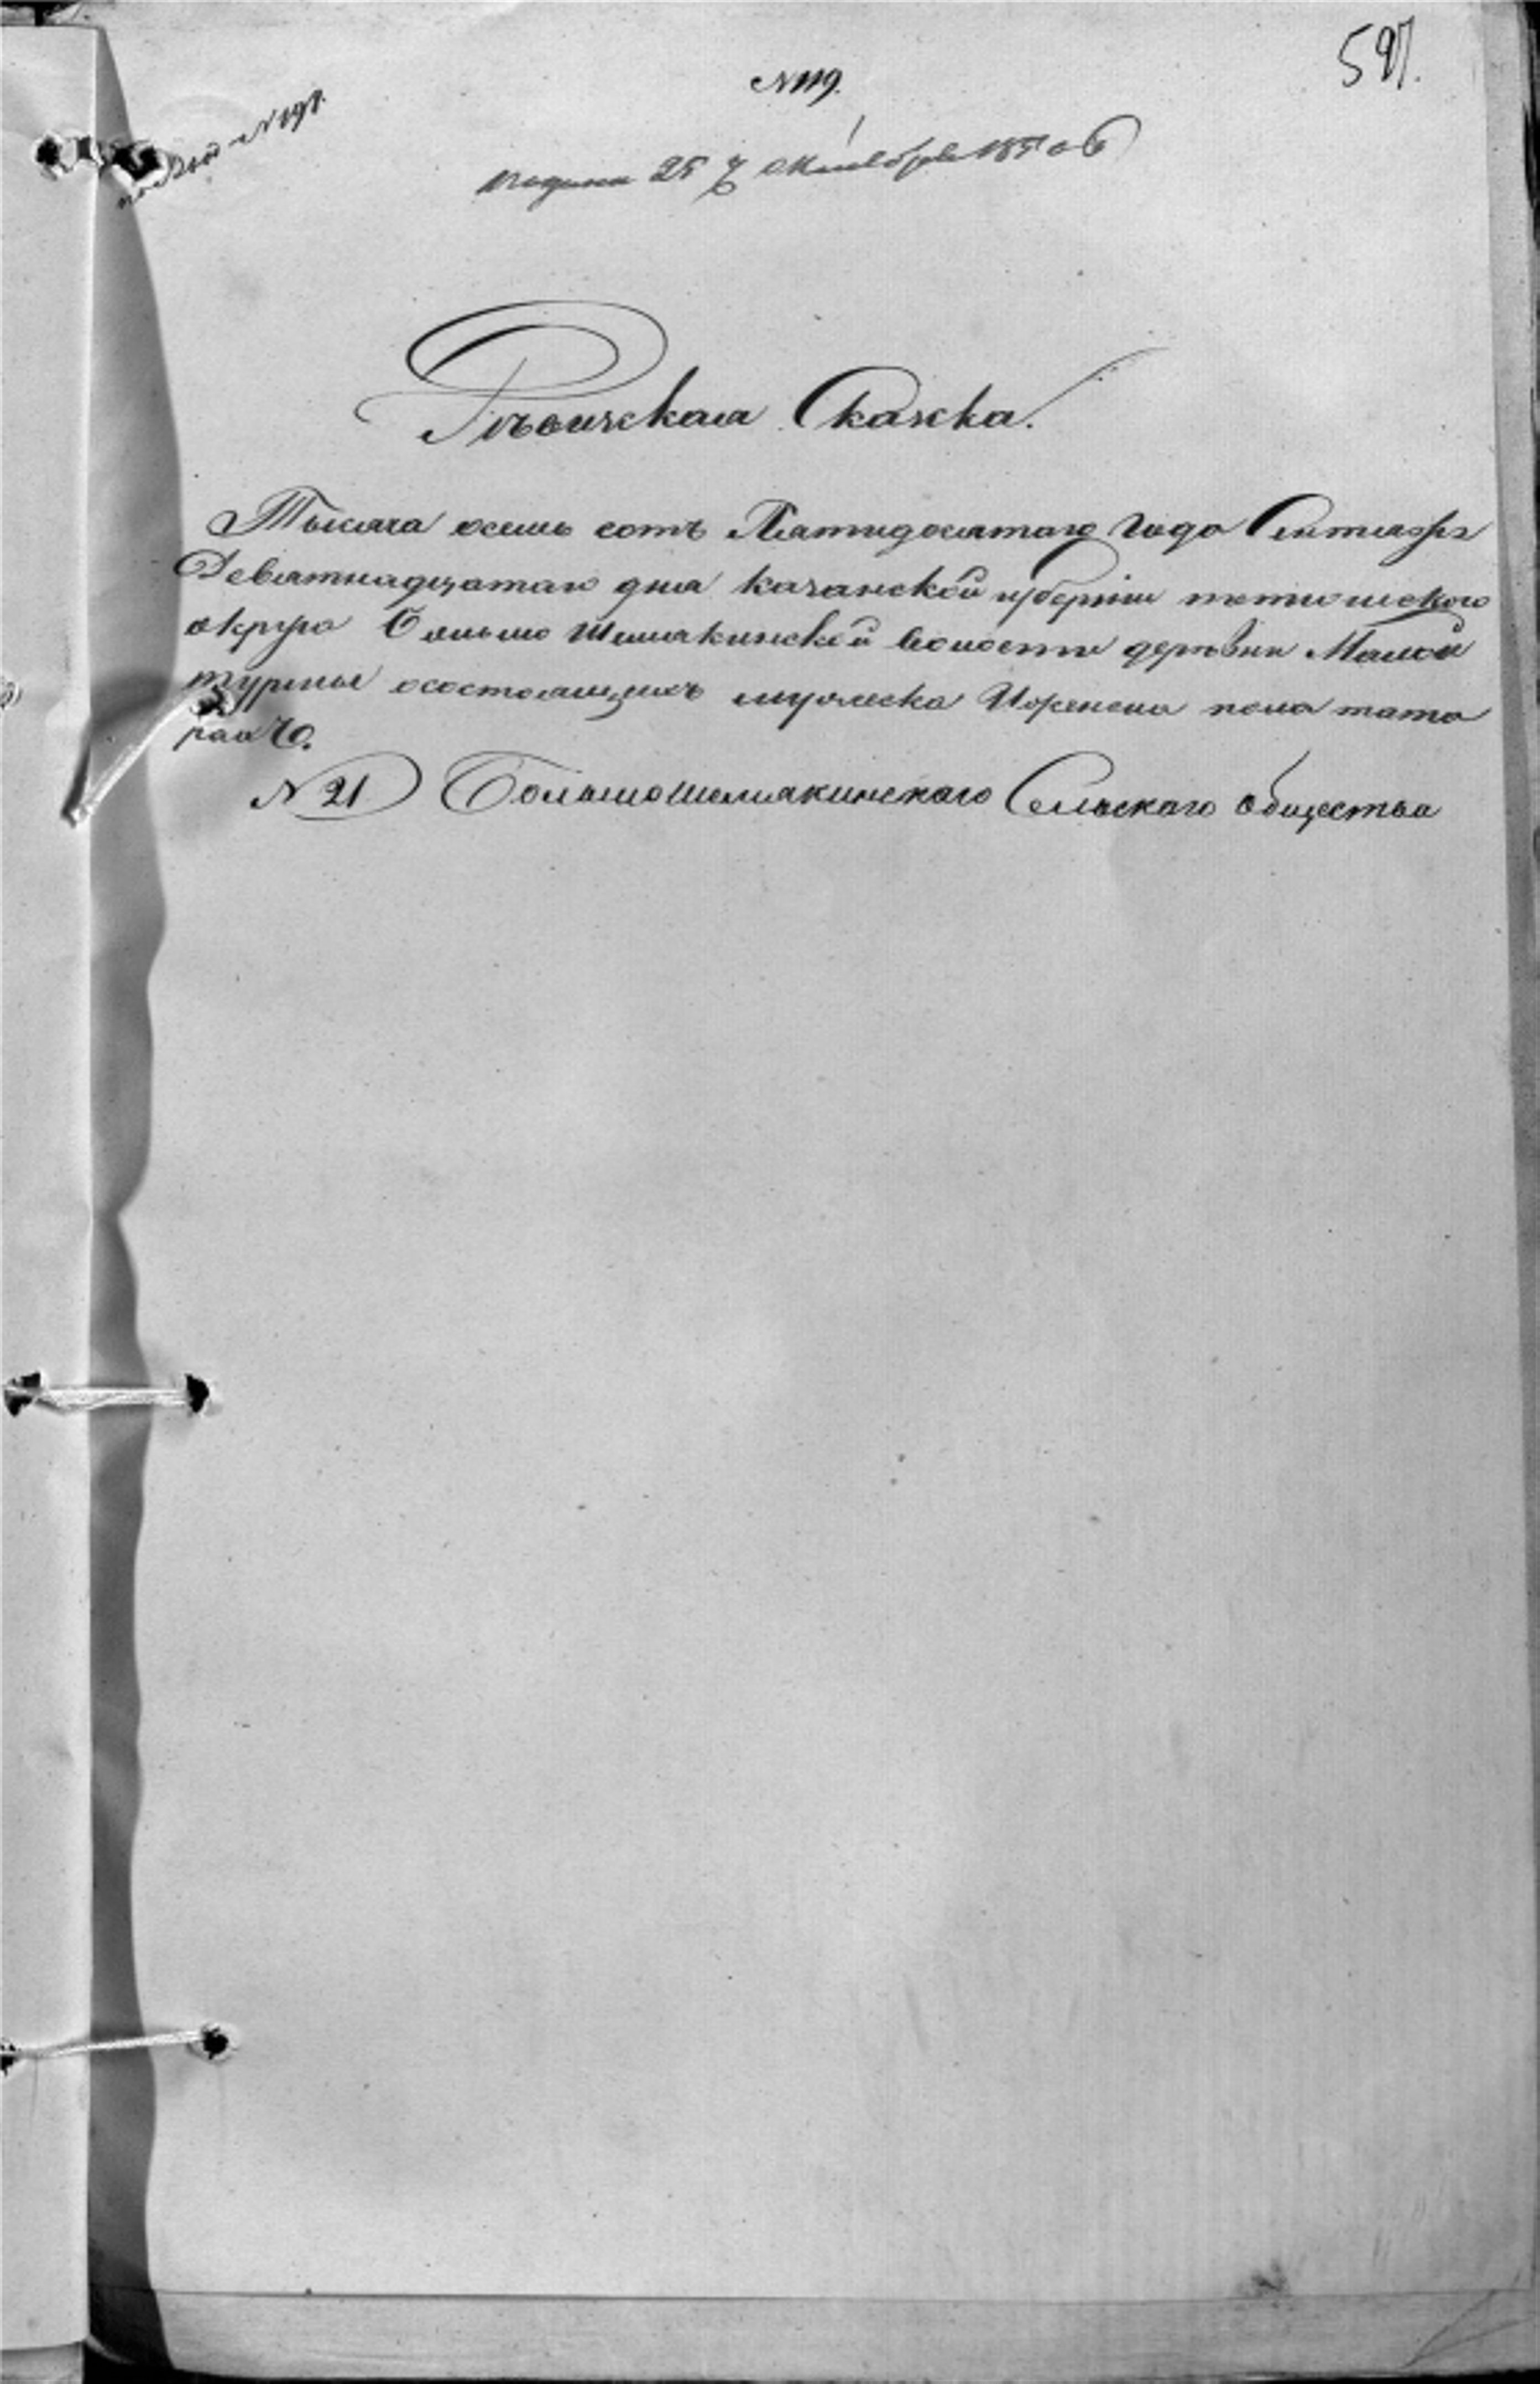 597.
N 119.
по Вол N 197.
подана 25 Октября 1850 г
Ревизская Сказка.
Тысяча осемь сотъ Пятидесятаго Года Сентября
Девятнадцатаго дня Казанской губерніи тетюшского
округа Больше Шемякинской волости деревни Малой
турмы осостоящихъ мужеска Иженска пола тата
рахъ.
N 21 Большешемякинскаго Сельскаго общества